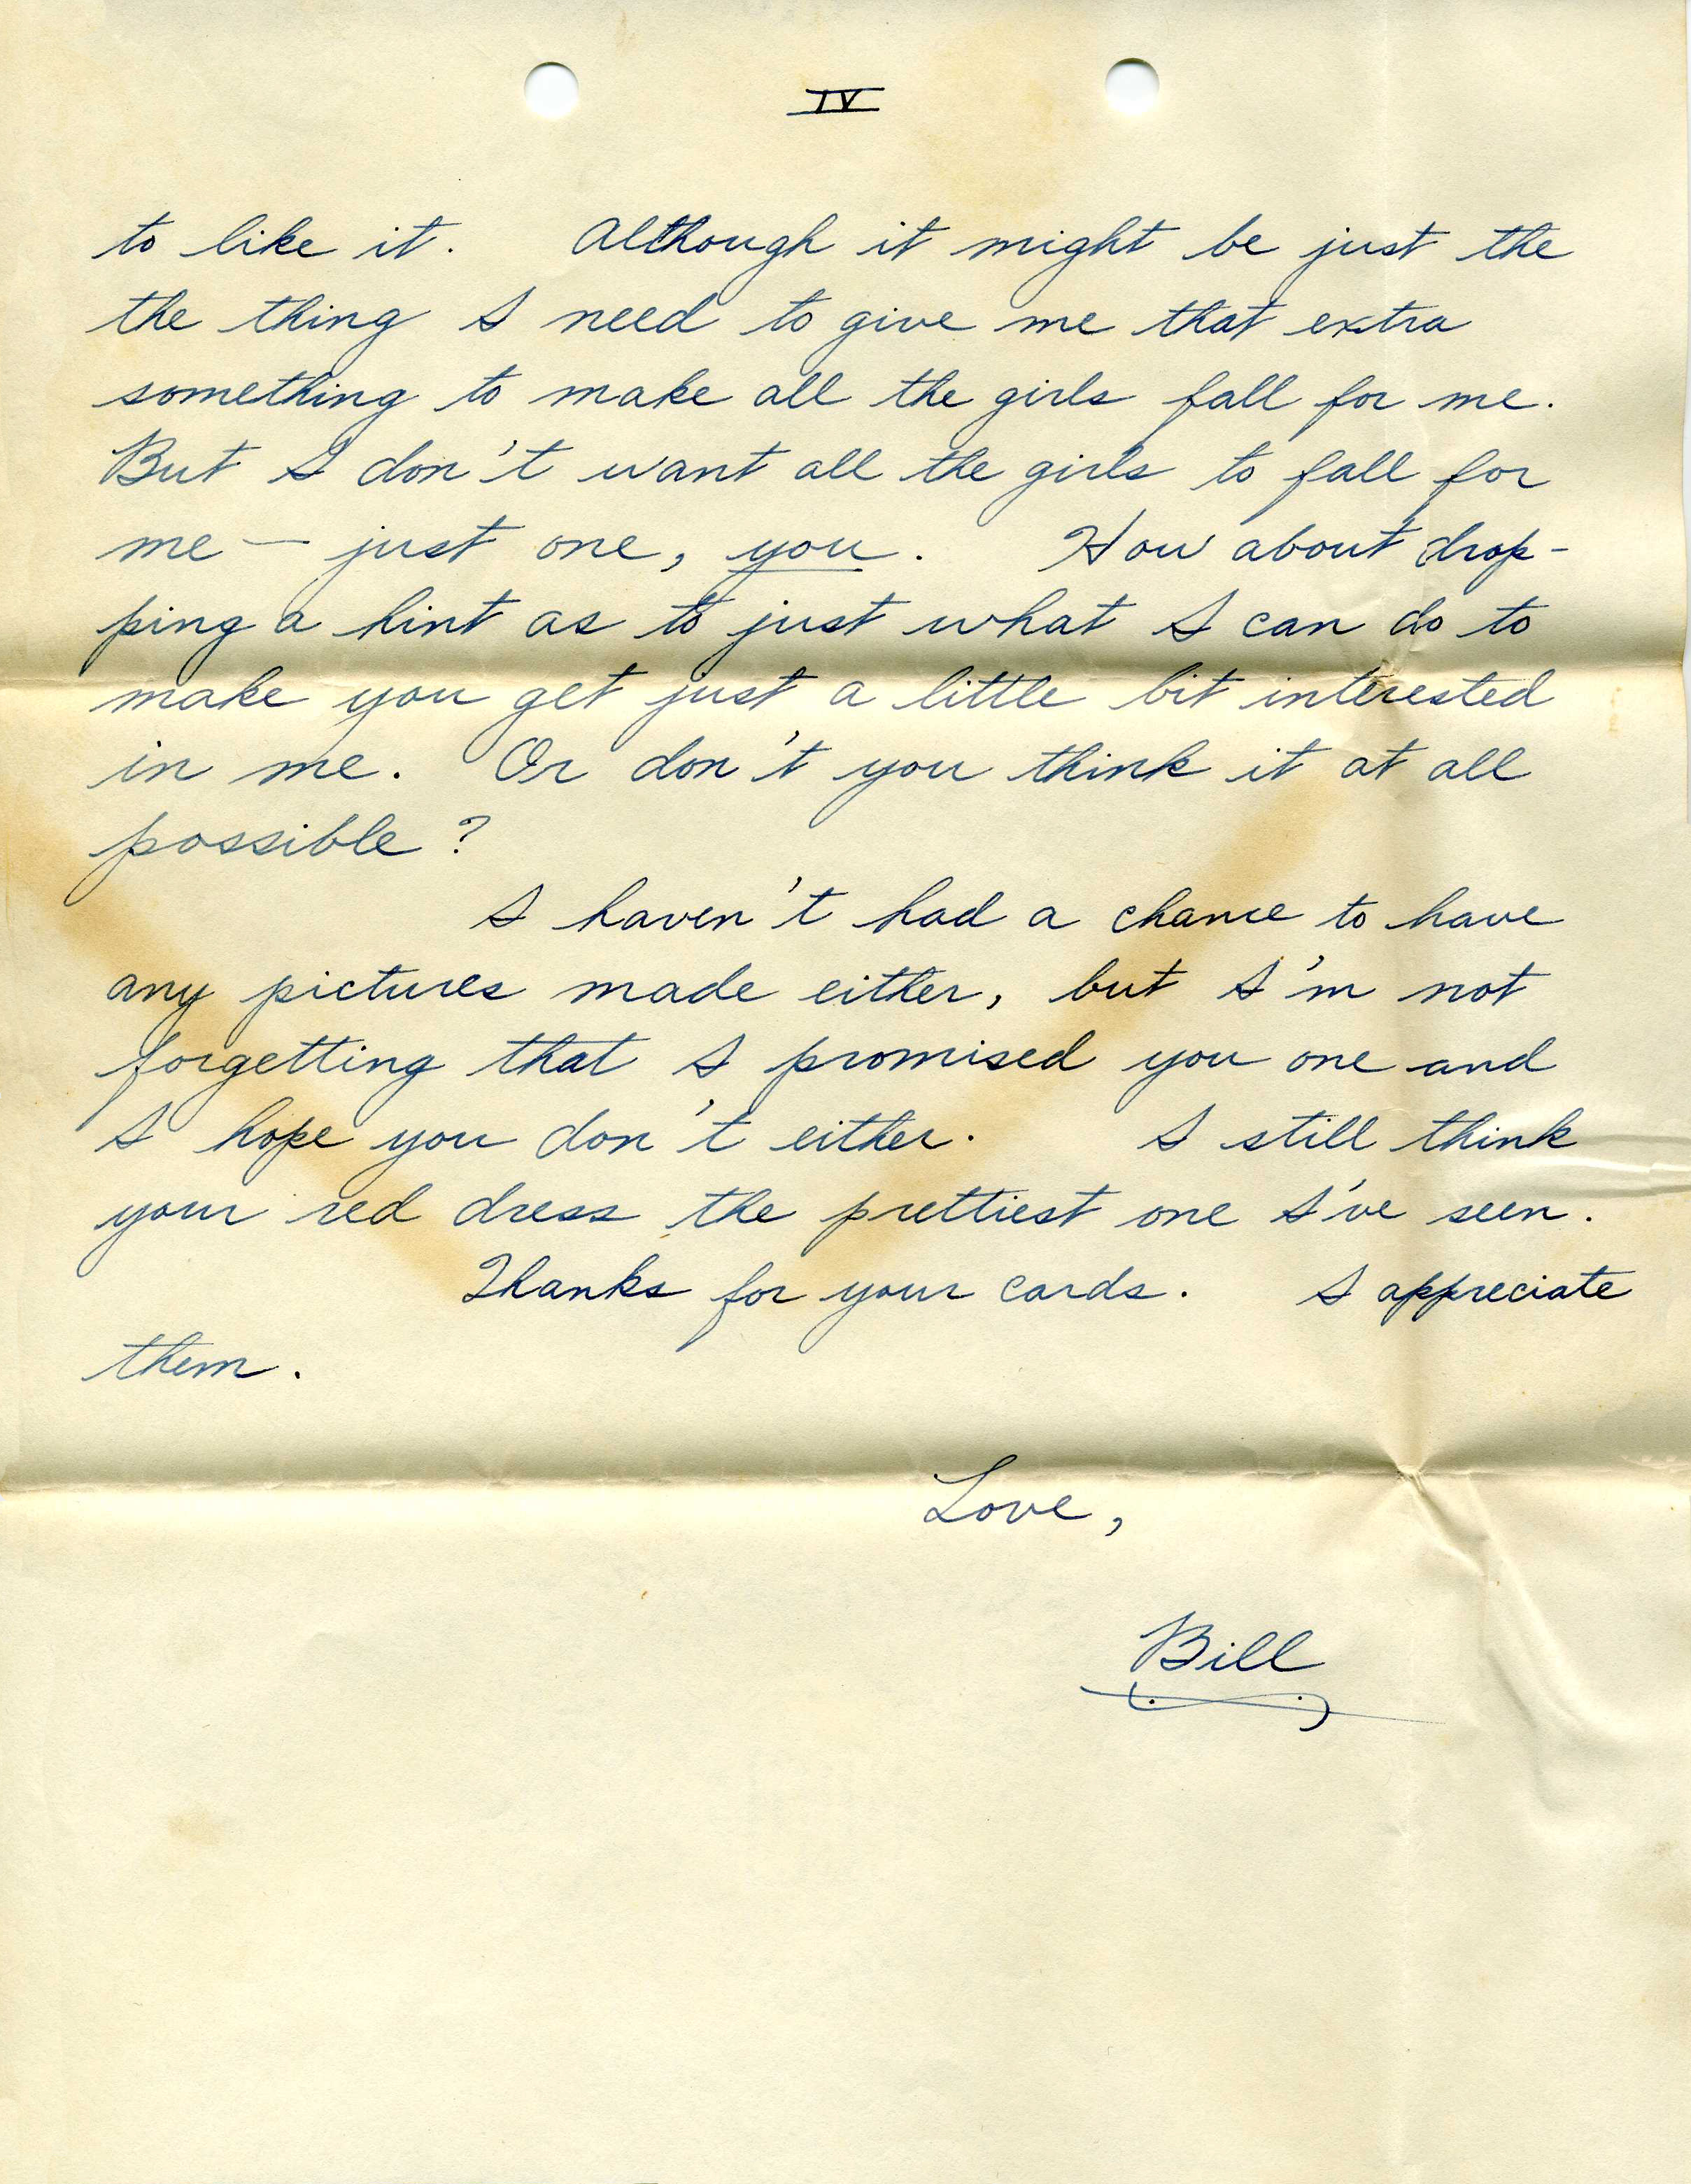 IV
to like it. Although it might be just the
the thing I need to give me that extra
something to make all the girls fall for me.
But I don't want all the girls to fall for
me — just one, you. How about drop-
ping a hint as to just what I can do to
make you get just a little bit interested
in me. Or don't you think it at all
possible?
I haven't had a chance to have
any pictures made either, but I'm not
forgetting that I promised you one and
I hope you don't either. I still think
your red dress the prettiest one I've seen.
Thanks for your cards. I appreciate
them.
Love,
Bill